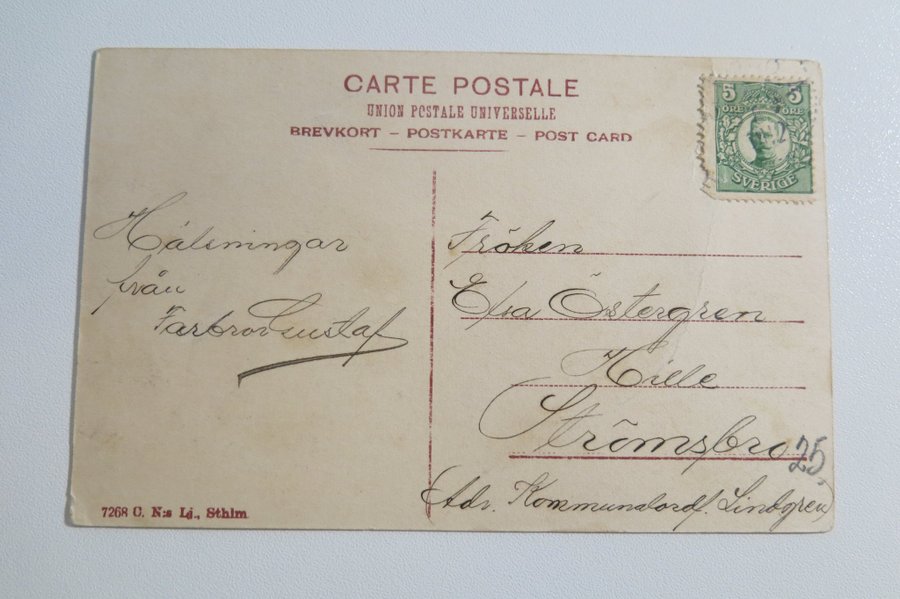 CARTE POSTALE
UNION POSTALE UNIVERSELLE
BREVKORT – POSTKARTE – POST CARD
5 5
ÖRE ÖRE
SVERIGE
Hälsningar
från
Farbror Gustaf
Fröken
Elsa Östergren
Hille
Strömsbro
25
(Adr. Kommunalordf. Lindgren)
7268 C. N:s Lj., Sthlm